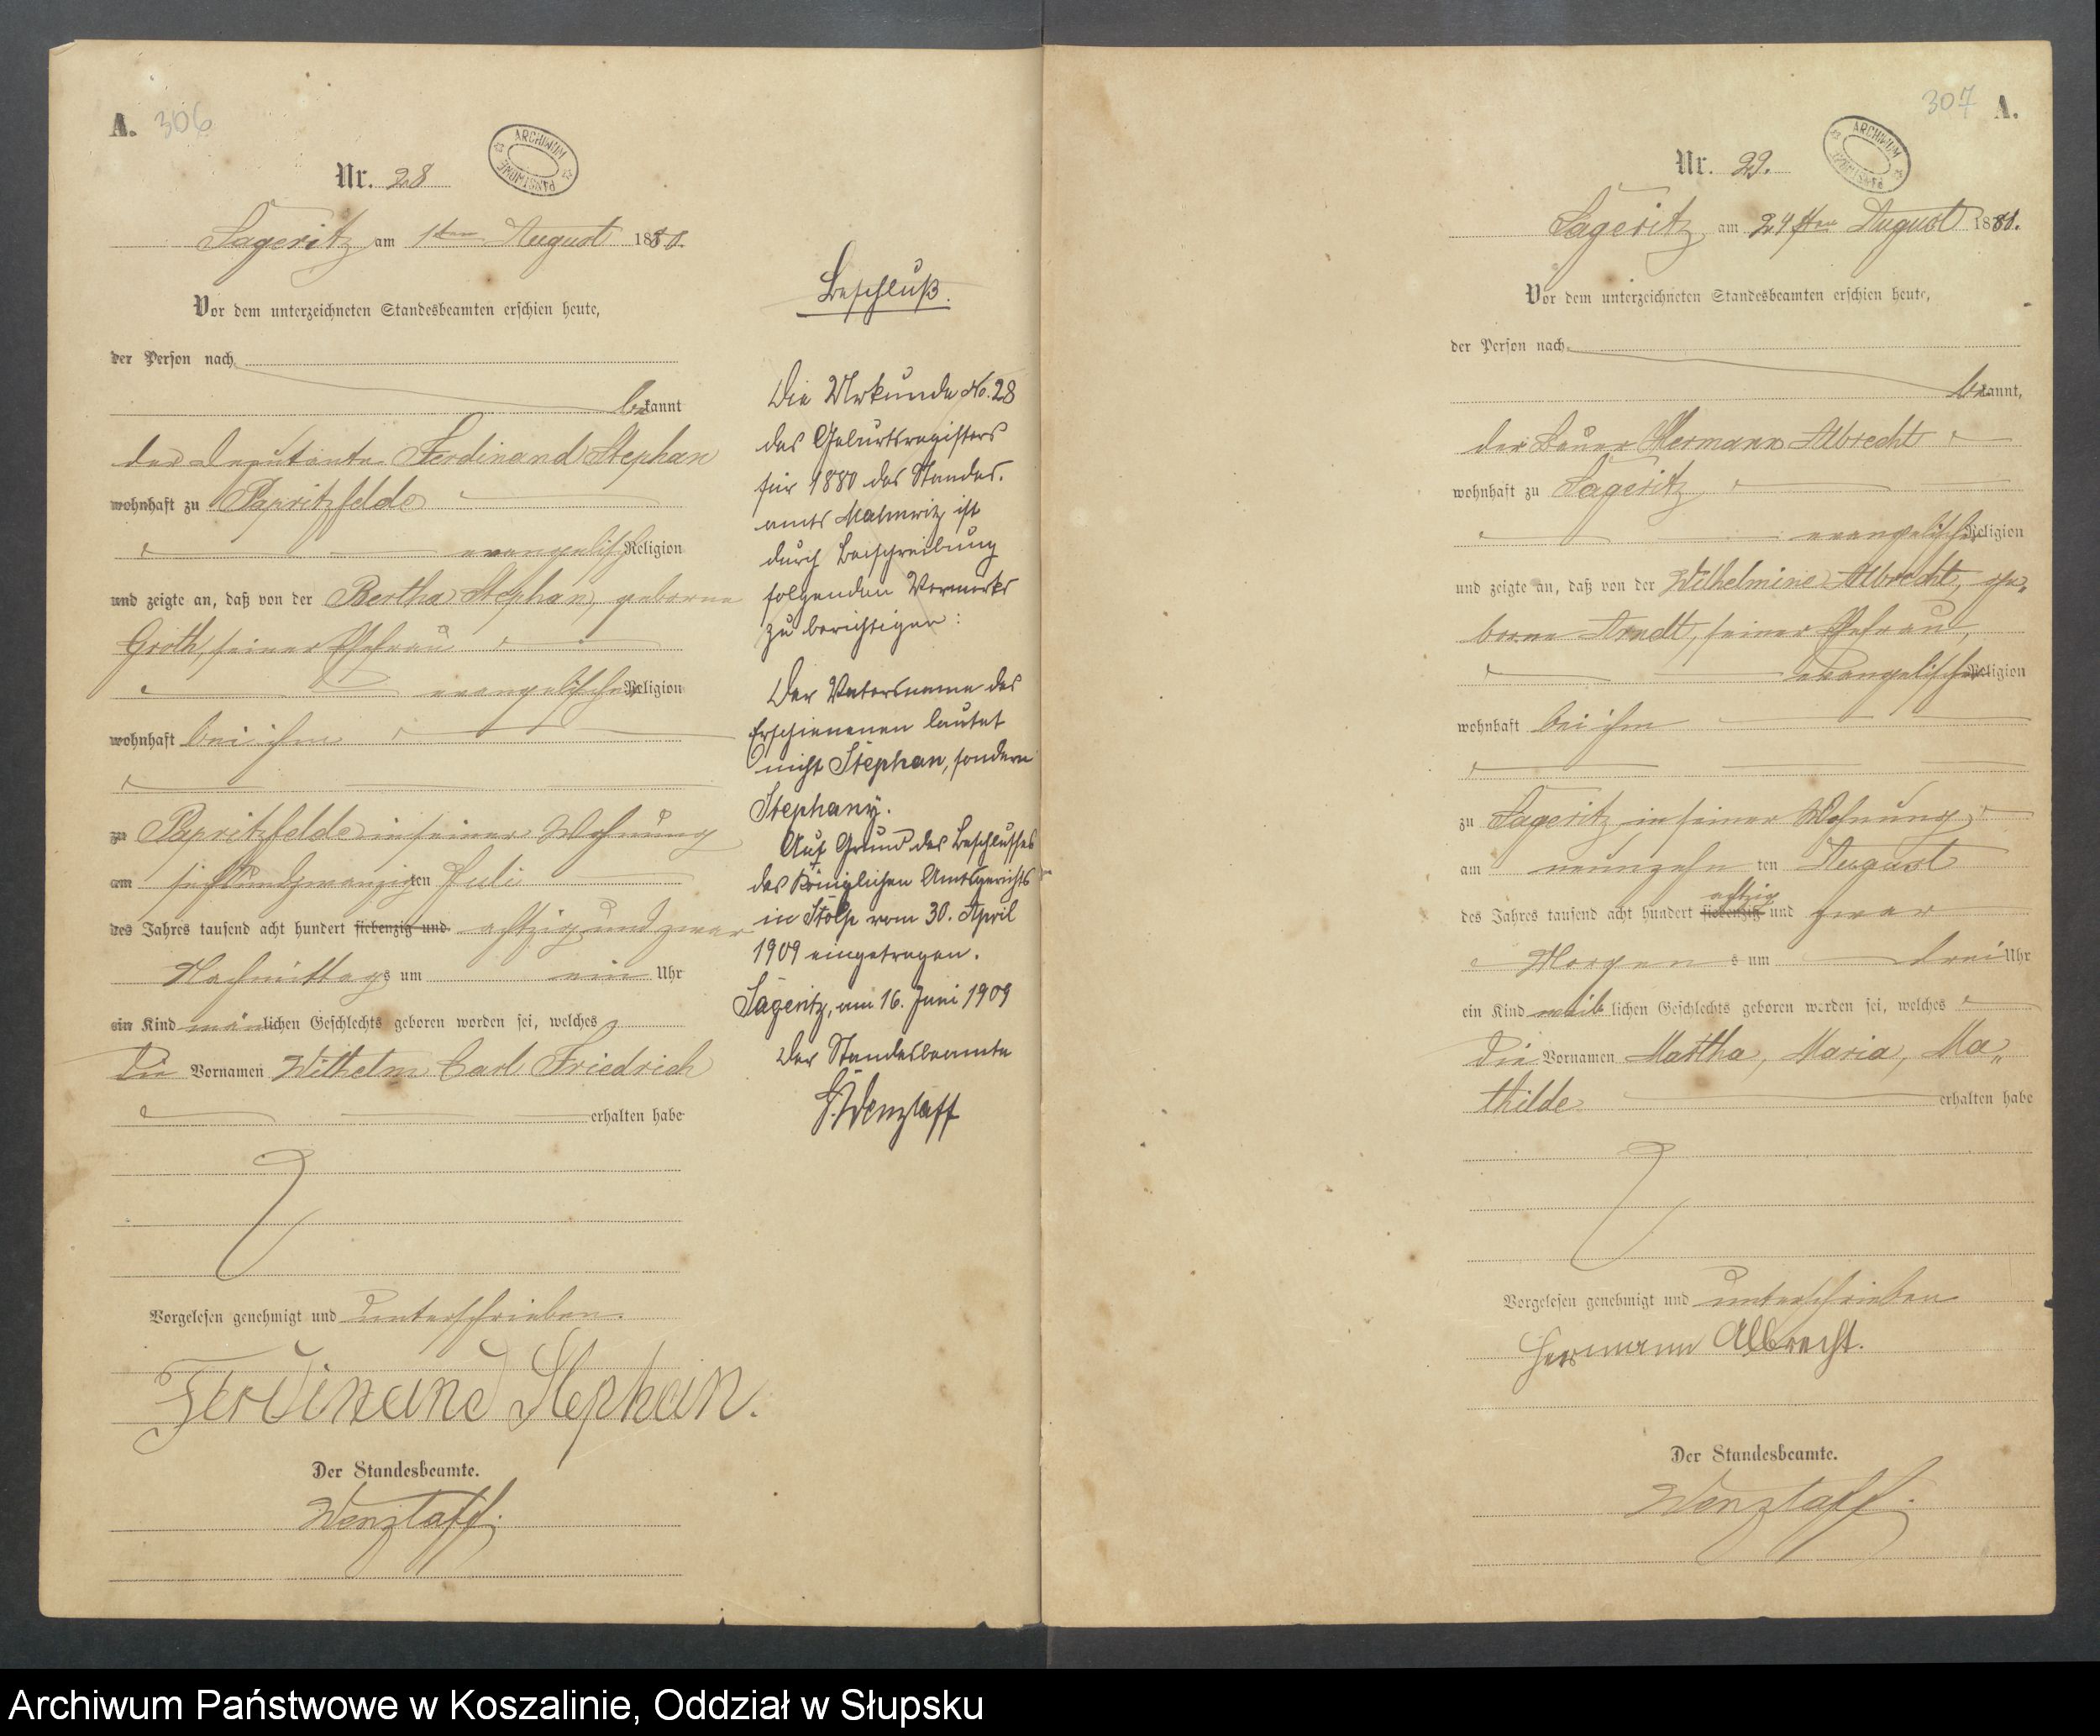 A. 306
ARCHIWUM PAŃSTWOWE
Nr. 28
Sageritz am 1ten August 1880.
Vor dem unterzeichneten Standesbeamten erschien heute,
der Person nach
bekannt
der Deputante Ferdinand Stephan
wohnhaft zu Papritzfelde
evangelischer Religion
und zeigte an, daß von der Bertha Stephan, geborne
Groth, seiner Ehefrau
evangelischer Religion
wohnhaft bei ihm
zu Papritzfelde in seiner Wohnung
am sechsundzwanzigten Juli
des Jahres tausend acht hundert siebenzig und achtzig und zwar
Nachmittags um ein Uhr
ein Kind männlichen Geschlechts geboren worden sei, welches
die Vornamen Wilhelm Carl Friedrich
erhalten habe
Vorgelesen genehmigt und unterschrieben.
Ferdinand Stephan.
Der Standesbeamte.
Wenzlaff.
Beschluß.
Die Urkunde No. 28
des Geburtsregisters
für 1880 des Standes-
amts Malmritz ist
durch Beischreibung
folgenden Vermerks
zu berichtigen:
Der Vatersname des
Erschienenen lautet
nicht Stephan, sondern
Stephany.
Auf Grund des Beschlusses
des Königlichen Amtsgerichts
in Stolp vom 30. April
1909 eingetragen.
Sageritz, am 16. Juni 1909
Der Standesbeamte
Wenzlaff
307 A.
ARCHIWUM PAŃSTWOWE
Nr. 29.
Sageritz, am 24ten August 1880.
Vor dem unterzeichneten Standesbeamten erschien heute,
der Person nach
bekannt,
der Bauer Hermann Albrecht
wohnhaft zu Sageritz
evangelischer Religion
und zeigte an, daß von der Wilhelmine Albrecht, ge„
borne Arndt, seiner Ehefrau,
evangelischer Religion
wohnhaft bei ihm
zu Sageritz in seiner Wohnung
am neunzehn ten August
achtzig
des Jahres tausend acht hundert siebenzig und zwar
Morgens um drei Uhr
ein Kind weiblichen Geschlechts geboren worden sei, welches
die Vornamen Martha, Maria, Ma„
thilde
erhalten habe
Vorgelesen genehmigt und unterschrieben
Hermann Albrecht.
Der Standesbeamte.
Wenzlaff.
Archiwum Państwowe w Koszalinie, Oddział w Słupsku